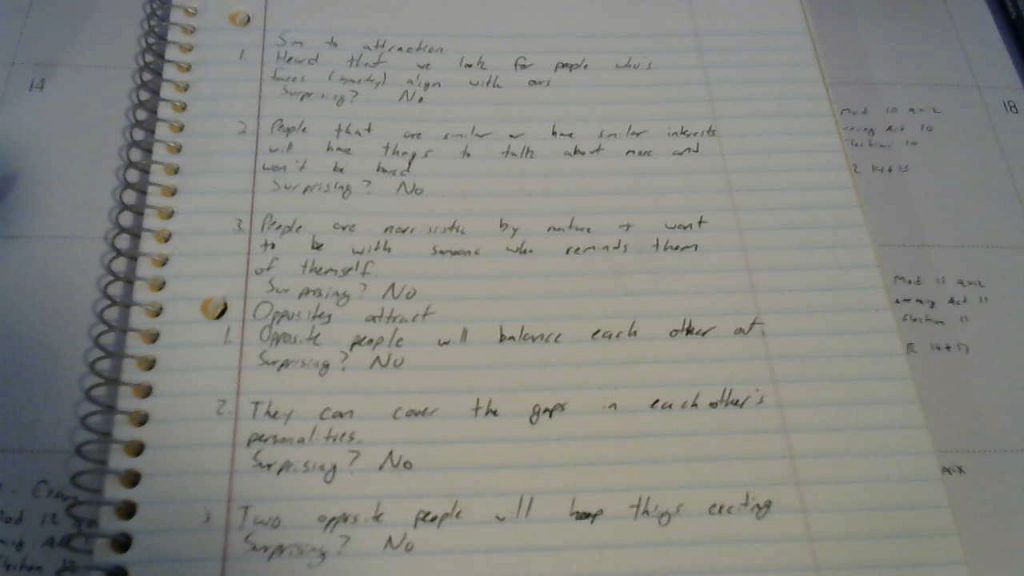 Sim to attraction
1. Heard that we look for people who's
faces (symmetry) align with ours
Surprising? No
2. People that are similar or have similar interests
will have things to talk about more and
won't be bored
Surprising? No
3. People are narcissistic by nature + want
to be with someone who reminds them
of themself.
Surprising? No
Opposites attract
1. Opposite people will balance each other out.
Surprising? No
2. They can cover the gaps in each other's
personalities.
Surprising? No
3 Two opposite people will keep things exciting
Surprising? No
14
18
Mod 10 quiz
Act 10
Election 10
R 14+15
Mod 11 quiz
Act 11
Election 11
Mod 12